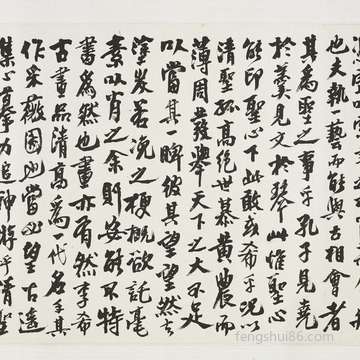 也夫執一藝而能與古相會者
其為聖之事乎孔子見堯
於羹見文於琴此惟聖心
能印聖心下此敢或希乎況以
清聖孤高絕世慕黃農而
薄周發舉天下之大不足
以當其一睥彼其望望然去
塗炭若浼之梗概欲託毫
素以肖之余則安能不特
書為然也畫亦有然李希
古畫品清高為代名手其
作采薇圖也當必望古遙
集心摹力追神游乎清聖
fengshui86.com